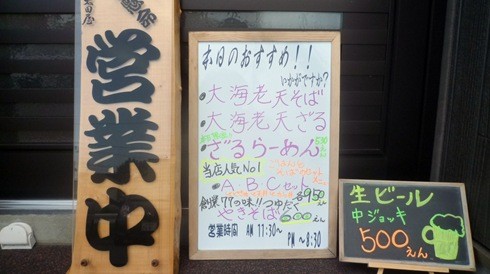 営業中
本日のおすすめ!!
いかがですか?
・大海老天そば
・大海老天ざる
・ざるらーめん
当店人気No1
・A.B.Cセット
各950
創業77の味!!つゆだく
やきそば
えん
営業時間 AM 11:30~
PM ~8:30
生ビール
中ジョッキ
500えん